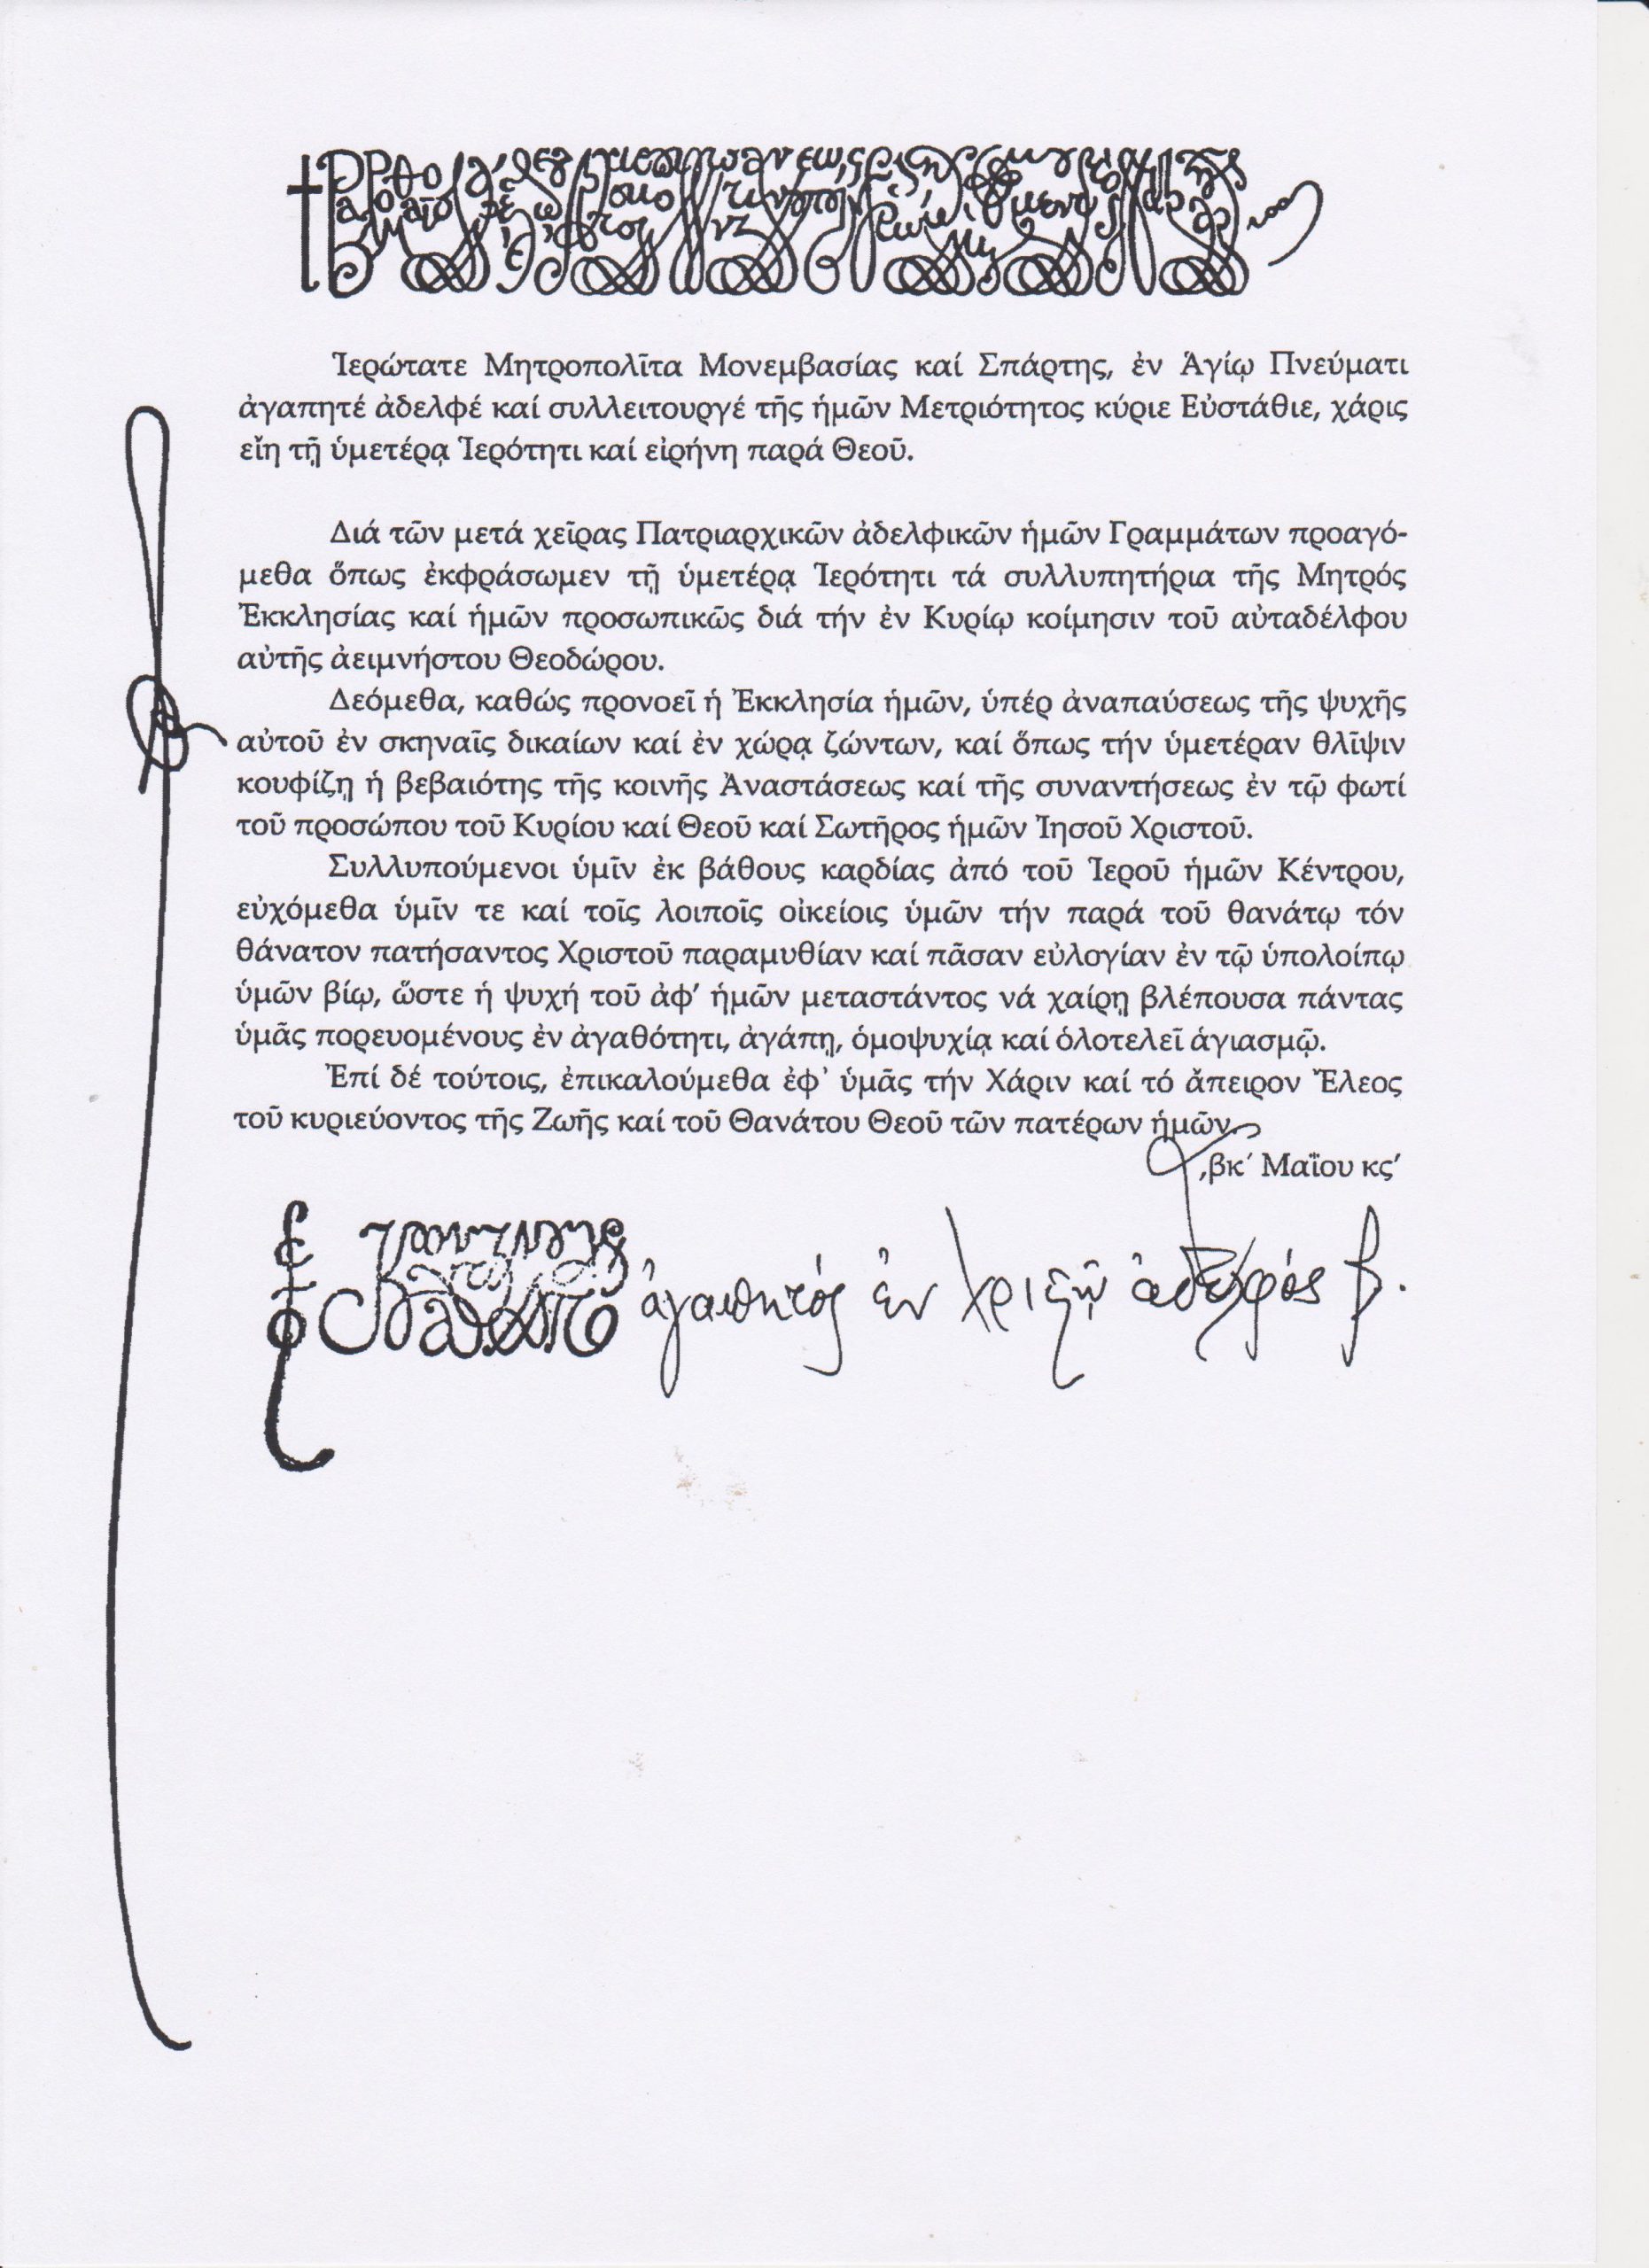 Ἱερώτατε Μητροπολῖτα Μονεμβασίας καί Σπάρτης, ἐν Ἁγίῳ Πνεύματι
ἀγαπητέ ἀδελφέ καί συλλειτουργέ τῆς ἡμῶν Μετριότητος κύριε Εὐστάθιε, χάρις
εἴη τῇ ὑμετέρᾳ Ἱερότητι καί εἰρήνη παρά Θεοῦ.
Διά τῶν μετά χεῖρας Πατριαρχικῶν ἀδελφικῶν ἡμῶν Γραμμάτων προαγό-
μεθα ὅπως ἐκφράσωμεν τῇ ὑμετέρᾳ Ἱερότητι τά συλλυπητήρια τῆς Μητρός
Ἐκκλησίας καί ἡμῶν προσωπικῶς διά τήν ἐν Κυρίῳ κοίμησιν τοῦ αὐταδέλφου
αὐτῆς ἀειμνήστου Θεοδώρου.
Δεόμεθα, καθώς προνοεῖ ἡ Ἐκκλησία ἡμῶν, ὑπέρ ἀναπαύσεως τῆς ψυχῆς
αὐτοῦ ἐν σκηναῖς δικαίων καί ἐν χώρᾳ ζώντων, καί ὅπως τήν ὑμετέραν θλῖψιν
κουφίζῃ ἡ βεβαιότης τῆς κοινῆς Ἀναστάσεως καί τῆς συναντήσεως ἐν τῷ φωτί
τοῦ προσώπου τοῦ Κυρίου καί Θεοῦ καί Σωτῆρος ἡμῶν Ἰησοῦ Χριστοῦ.
Συλλυπούμενοι ὑμῖν ἐκ βάθους καρδίας ἀπό τοῦ Ἱεροῦ ἡμῶν Κέντρου,
εὐχόμεθα ὑμῖν τε καί τοῖς λοιποῖς οἰκείοις ὑμῶν τήν παρά τοῦ θανάτῳ τόν
θάνατον πατήσαντος Χριστοῦ παραμυθίαν καί πᾶσαν εὐλογίαν ἐν τῷ ὑπολοίπῳ
ὑμῶν βίῳ, ὥστε ἡ ψυχή τοῦ ἀφ’ ἡμῶν μεταστάντος νά χαίρῃ βλέπουσα πάντας
ὑμᾶς πορευομένους ἐν ἀγαθότητι, ἀγάπῃ, ὁμοψυχίᾳ καί ὁλοτελεῖ ἁγιασμῷ.
Ἐπί δέ τούτοις, ἐπικαλούμεθα ἐφ᾽ ὑμᾶς τήν Χάριν καί τό ἄπειρον Ἔλεος
τοῦ κυριεύοντος τῆς Ζωῆς καί τοῦ Θανάτου Θεοῦ τῶν πατέρων ἡμῶν.
͵βκ΄ Μαΐου κς’
ἀγαπητός ἐν Χριστῷ ἀδελφός β.